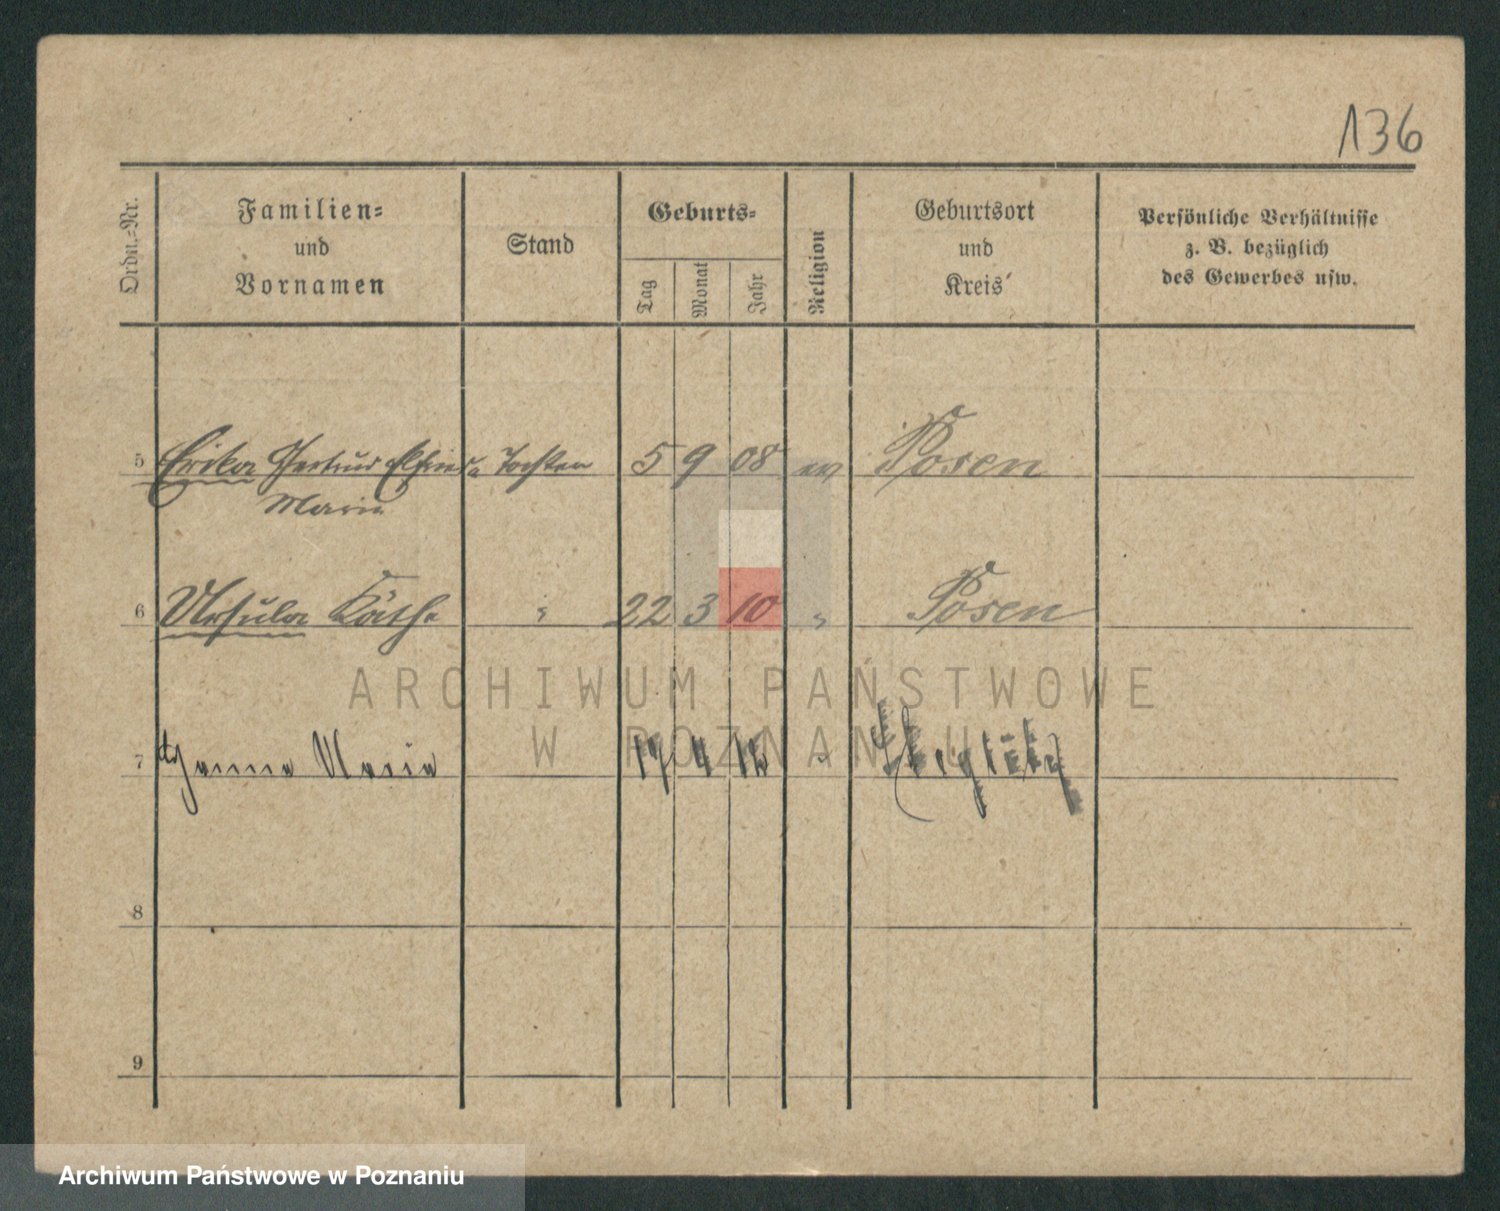 136
Ordn.-Nr.
Familien-
und
Vornamen
Stand
Geburts-
Tag
Monat
Jahr
Religion
Geburtsort
und
Kreis
Persönliche Verhältnisse
z. B. bezüglich
des Gewerbes usw.
5 Erika Gertrud Elfriede Tochter 5 9 08 ev Posen
Marie
6 Ursula Käthe " 22 3 10 " Posen
ARCHIWUM PAŃSTWOWE
W POZNANIU
7 Maria 4
8
9
Archiwum Państwowe w Poznaniu